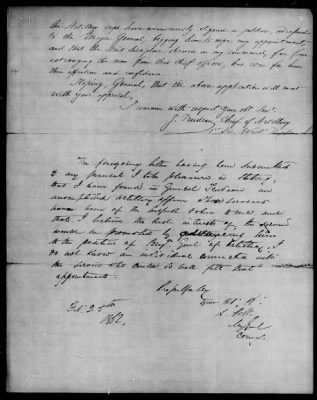 the Artillery corps have unanimously signed a petition, addressed
to the Major General, begging him to urge my appointment,
and that the strict discipline observed in my command, far from
estranging the men from their chief officer, has won for him
their affection and confidence.
Hoping, General, that the above application will meet
with your approval,
I remain with respect Your obt. Servt.
J. Trudeau, Chief of Artillery
The foregoing letter having been submitted
to my perusal I take pleasure in stating,
that I have found in General Trudeau an
accomplished Artillery officer whose services
have been of the highest value to me and
that I believe the best interests of the service
would be promoted by advancing him
to the position of Brigr. Genl. of Artillery. I
do not know an individual connected with
the service who could so well fill that
appointment.
Respectfully
Your Obt. St.
Feb. 25th
1862.
Comg.